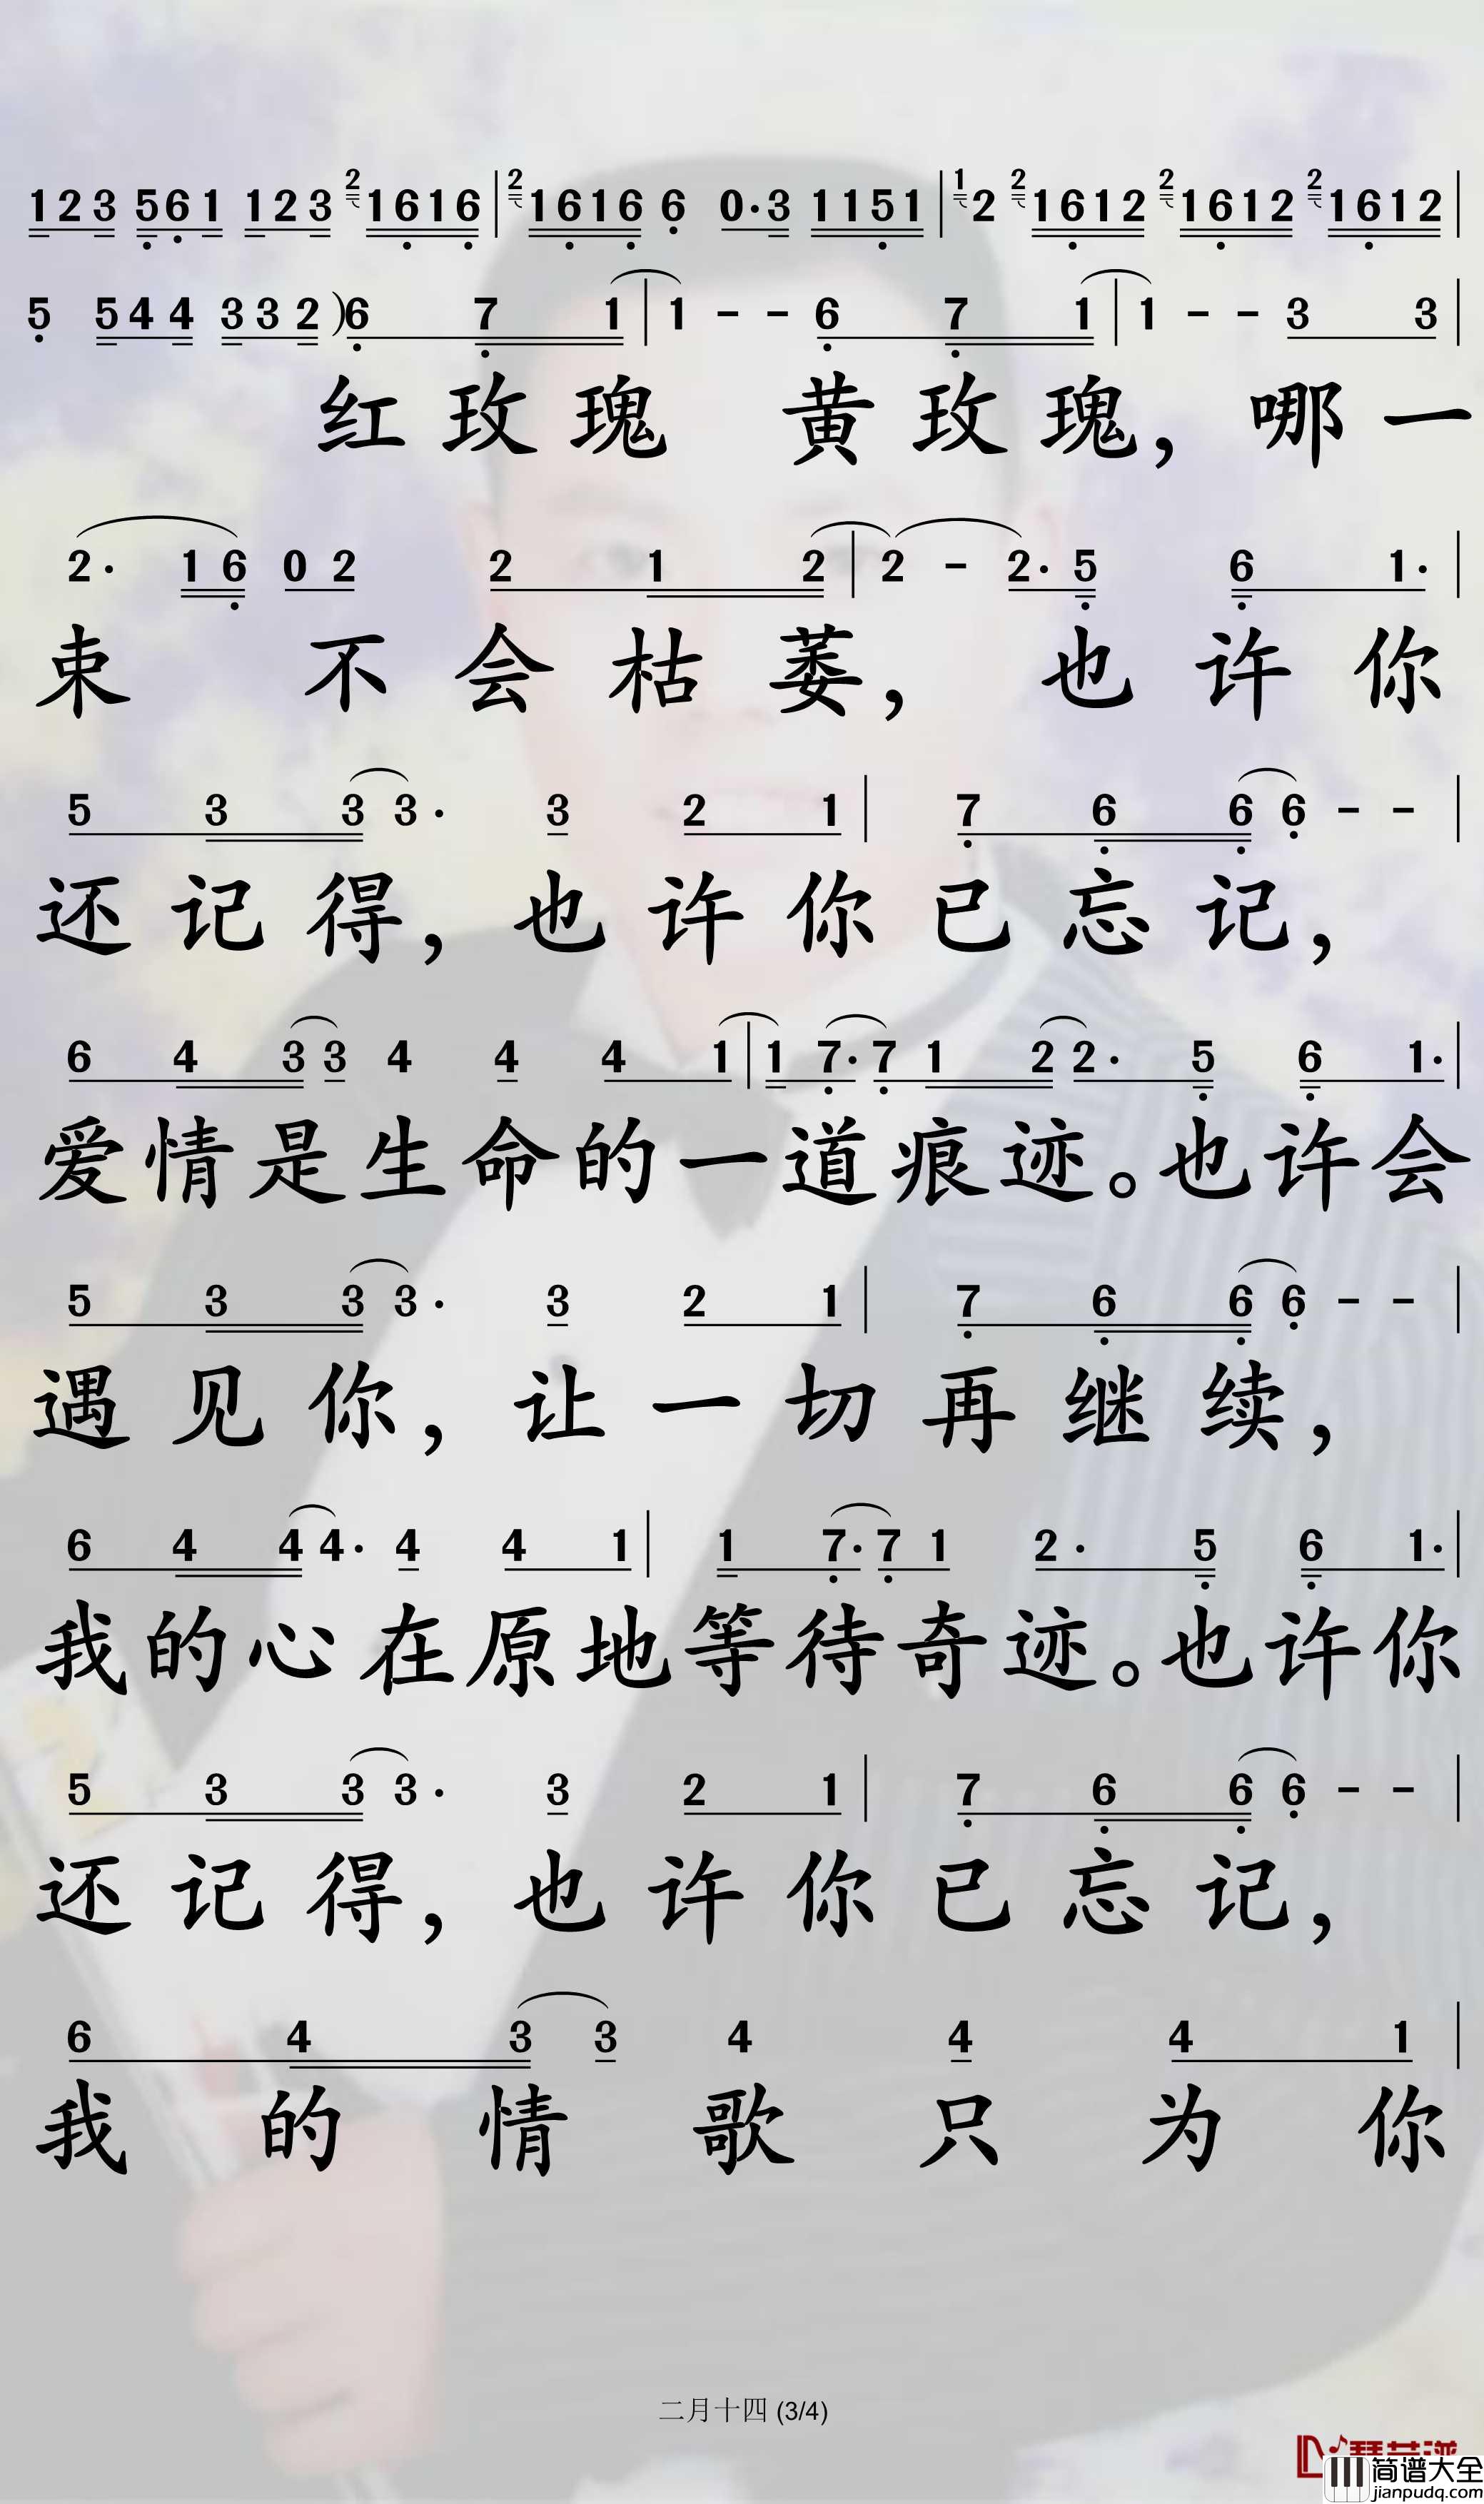 1 2 3 5 6 1 1 2 3 2 1 6 1 6 | 2 1 6 1 6 6 0 · 3 1 1 5 1 | 1 2 2 1 6 1 2 2 1 6 1 2 2 1 6 1 2 |
5 5 4 4 3 3 2 ) 6 7 1 | 1 - - 6 7 1 | 1 - - 3 3 |
红玫瑰 黄玫瑰，哪一
2 · 1 6 0 2 2 1 2 | 2 - 2 · 5 6 1 · |
束 不会枯萎， 也许你
5 3 3 3 · 3 2 1 | 7 6 6 6 - - |
还记得，也许你已忘记，
6 4 3 3 4 4 4 1 | 1 7 · 7 1 2 2 · 5 6 1 · |
爱情是生命的一道痕迹。也许会
5 3 3 3 · 3 2 1 | 7 6 6 6 - - |
遇见你，让一切再继续，
6 4 4 4 · 4 4 1 | 1 7 · 7 1 2 · 5 6 1 · |
我的心在原地等待奇迹。也许你
5 3 3 3 · 3 2 1 | 7 6 6 6 - - |
还记得，也许你已忘记，
6 4 3 3 4 4 4 1 |
我的情歌只为你
二月十四 (3/4)
简谱大全
jianpudq.com